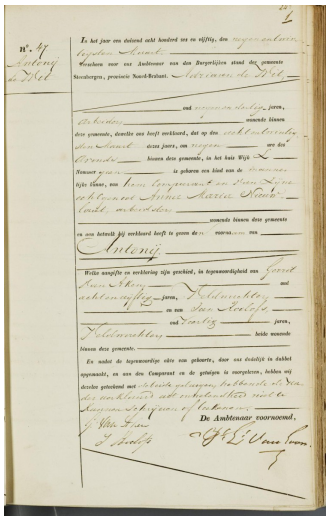 No. 47
Antonij
de Wit
In het jaar een duizend acht honderd zes en vijftig, den negenentwin
tigsten Maart
Verscheen voor ons Ambtenaar van den Burgerlijken stand der gemeente
Steenbergen, provincie Noord-Braband. Adriaan de Wit,
oud negenendertig jaren,
arbeider wonende binnen
deze gemeente, dewelke ons heeft verklaard, dat op den achtentwintig
sten Maart dezes jaars, om negen ure des
avonds binnen deze gemeente, in het huis Wijk L
Nommer is geboren een kind van de
lijke kunne, van hem Comparant en van zijne
echtgenoot Anna Maria
arbeidster
wonende binnen deze gemeente
en aan hetwelk hij verklaard heeft te geven den voornaam van
Antonij
Welke aangifte en verklaring zijn geschied, in tegenwoordigheid van Gerrit
van oud
achtenvijftig jaren, Veldwachter
en van Jan
oud veertig jaren,
Veldwachter beide wonende
binnen deze gemeente
En nadat de tegenwoordige akte van geboorte, door ons duidelijk in dubbel
opgemaakt, en aan den Comparant en de getuigen is voorgelezen, hebben wij
dezelve geteekend met de beide getuigen, hebbende de Va
der verklaard uit onkunde niet te
kunnen schrijven of teekenen.
De Ambtenaar voornoemd,
G Van
J
Van Loon